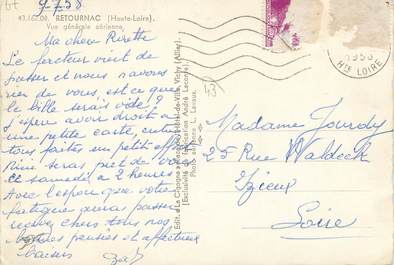 9758
43.162.08 RETOURNAC (Haute-Loire).
Vue générale aérienne.
Ma chère Pierrette
Le facteur vient de
passer et nous n'avons
rien de vous, est ce que
la bille serait vide ?
J'espère avoir droit à
une petite carte, enfin
tous faites un petit effort
Mimi sera prêt de vous
ce samedi à 2 heures
Avec l'espoir que votre
fatigue aura passée
recevez chers tous nos
bonnes pensées et affectueux
baisers
Edit. « La Cigogne »
Hôtel-de-Ville, Vichy (Allier)
(Exclusivité de distribution André Leconte)
1950
Hte LOIRE
Madame Jourdy
25 Rue Waldeck
Izieux
Loire